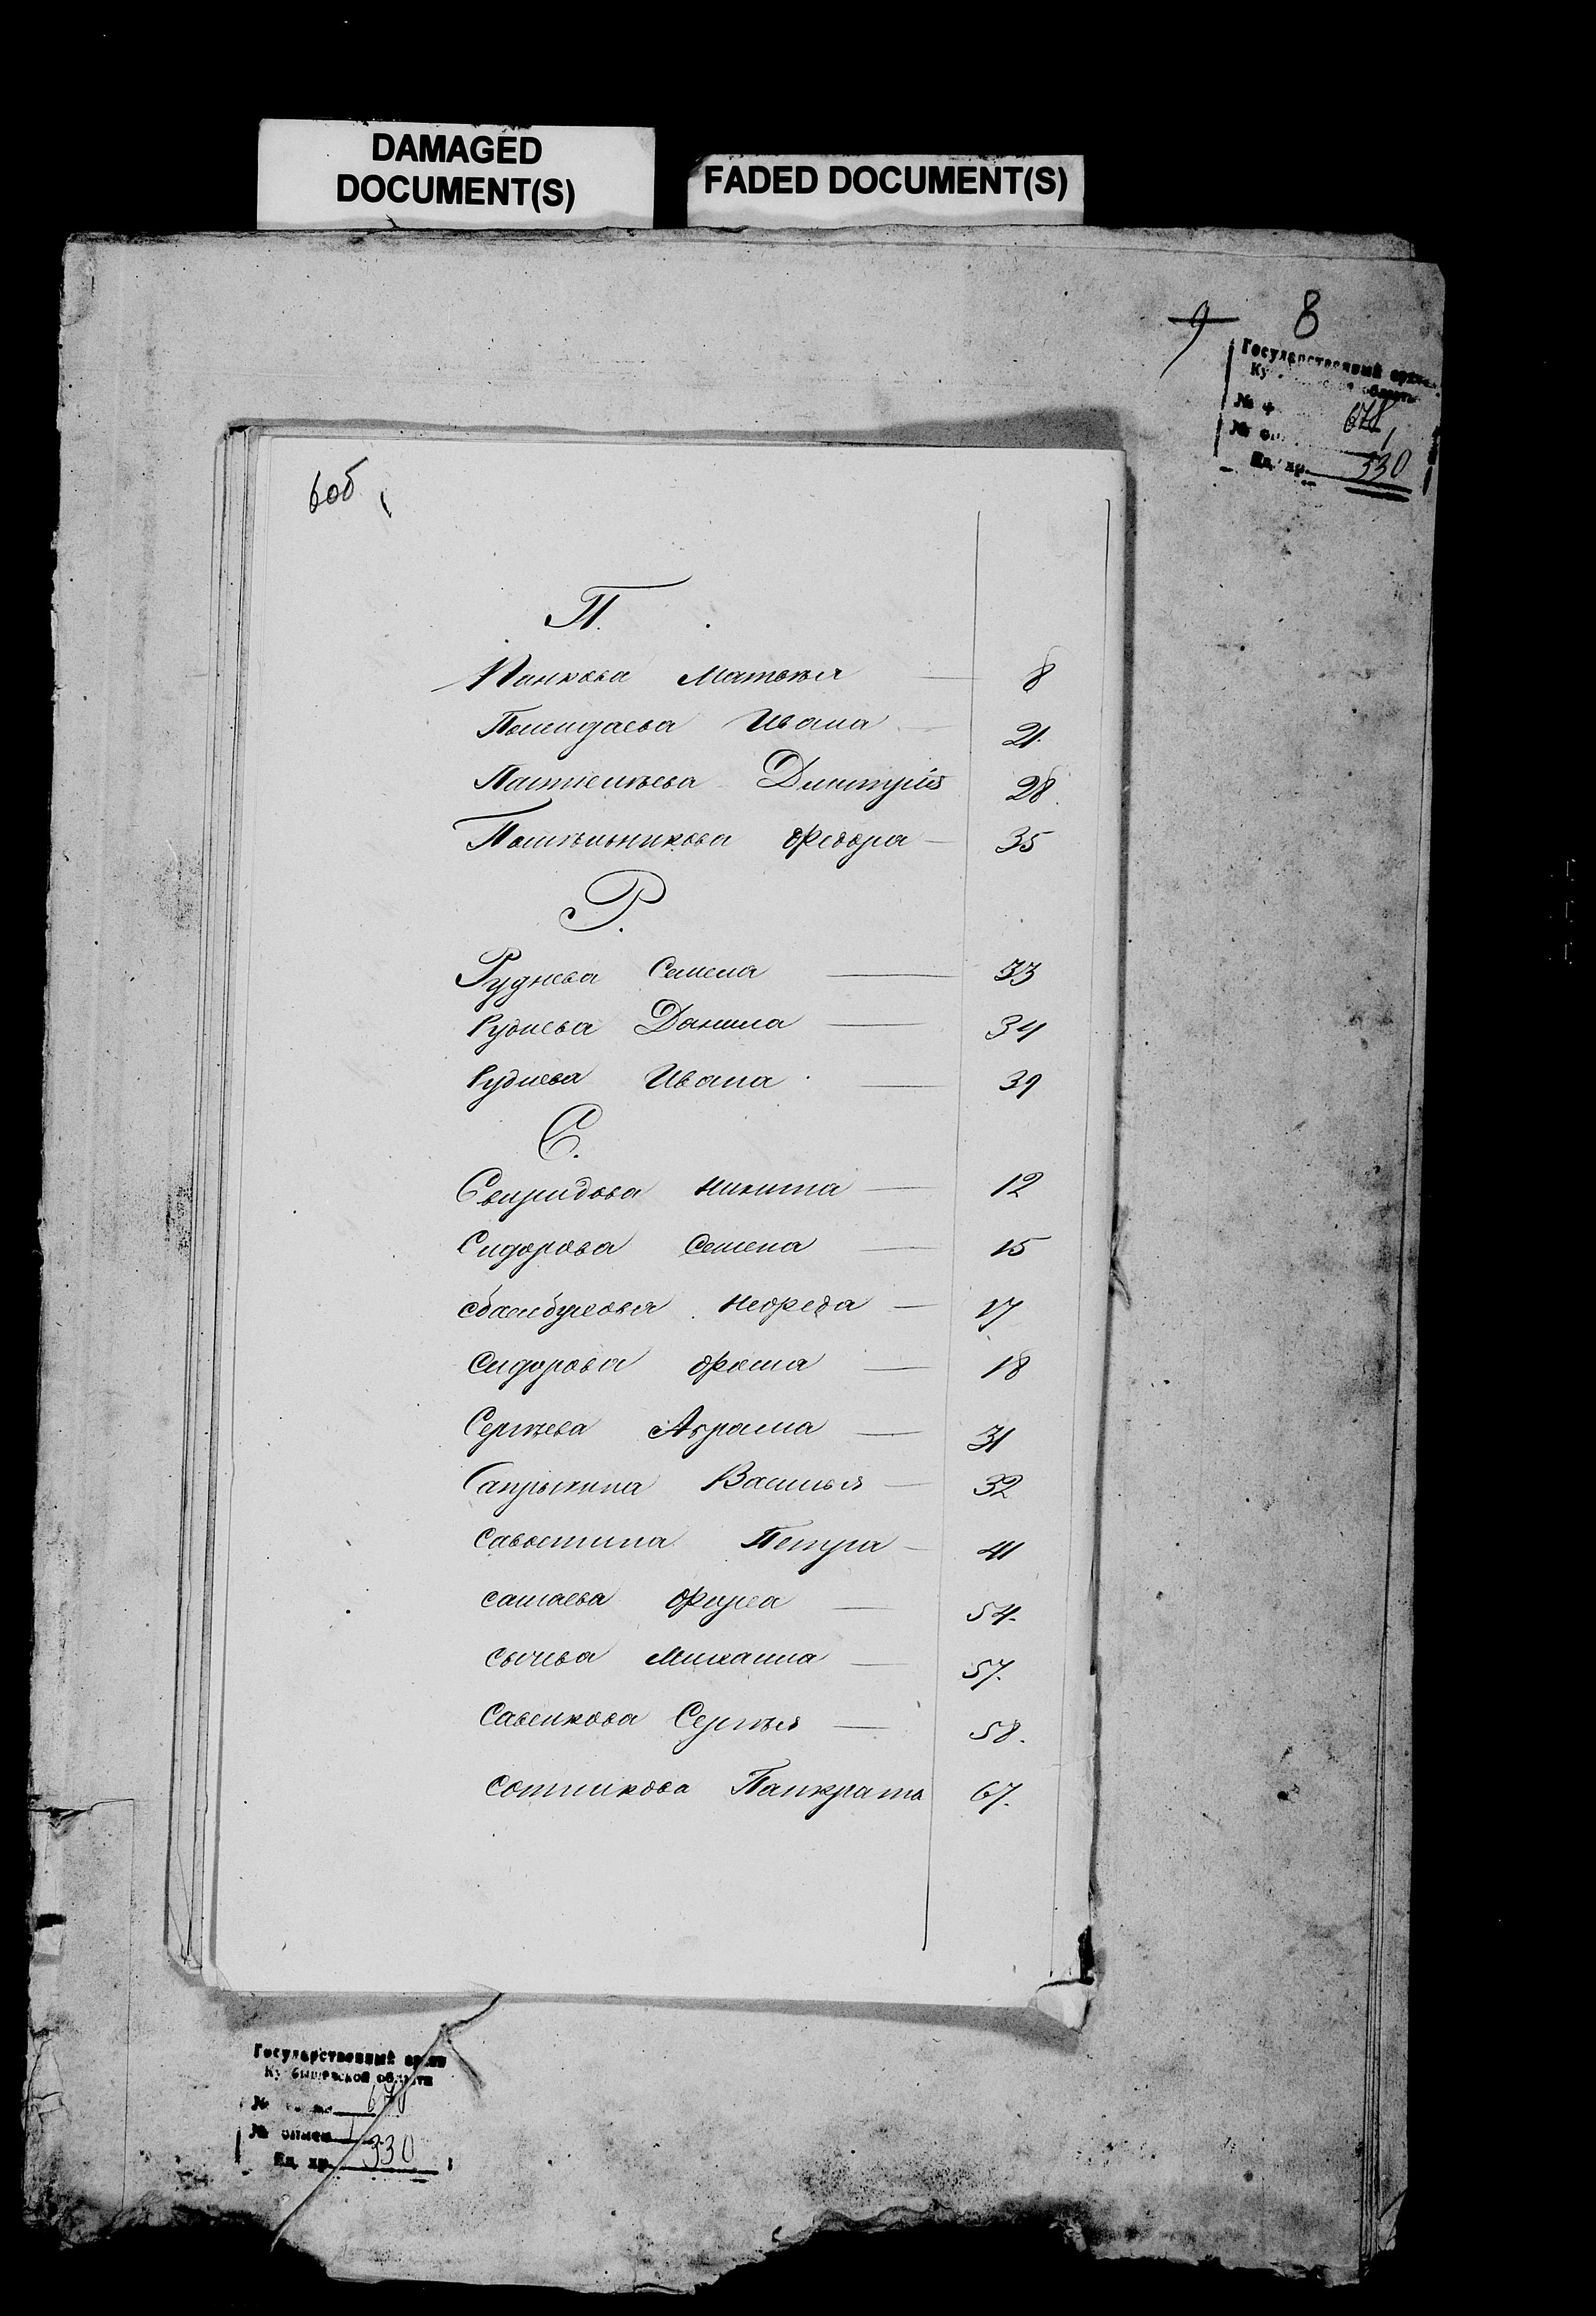 DAMAGED
DOCUMENT(S)
FADED DOCUMENT(S)
9 8
Государственный архив
области
№ ф. 678
№ оп. 1
Ед. хр. 330
6об
П.
Панкова Матвѣя 8
Ивана 21.
Дмитрія 28.
Федора 35
Р.
Руднева Семена 33
Руднева Данила 34
Руднева Ивана 39
С.
Свиридова Никита 12
Сидорова Семена 15
Нефеда 17
Сидорова Фома 18
Сергѣева Абрама 31
Сапрыкина Василья 32
Савостина Петра 41
Фирса 54.
Сычева Михаила 57.
Савенкова Сергѣя 58.
Сотникова Панкрата 67.
Государственный архив
Куйбышевской области
№ 678
№ описи 1
Ед. хр. 330